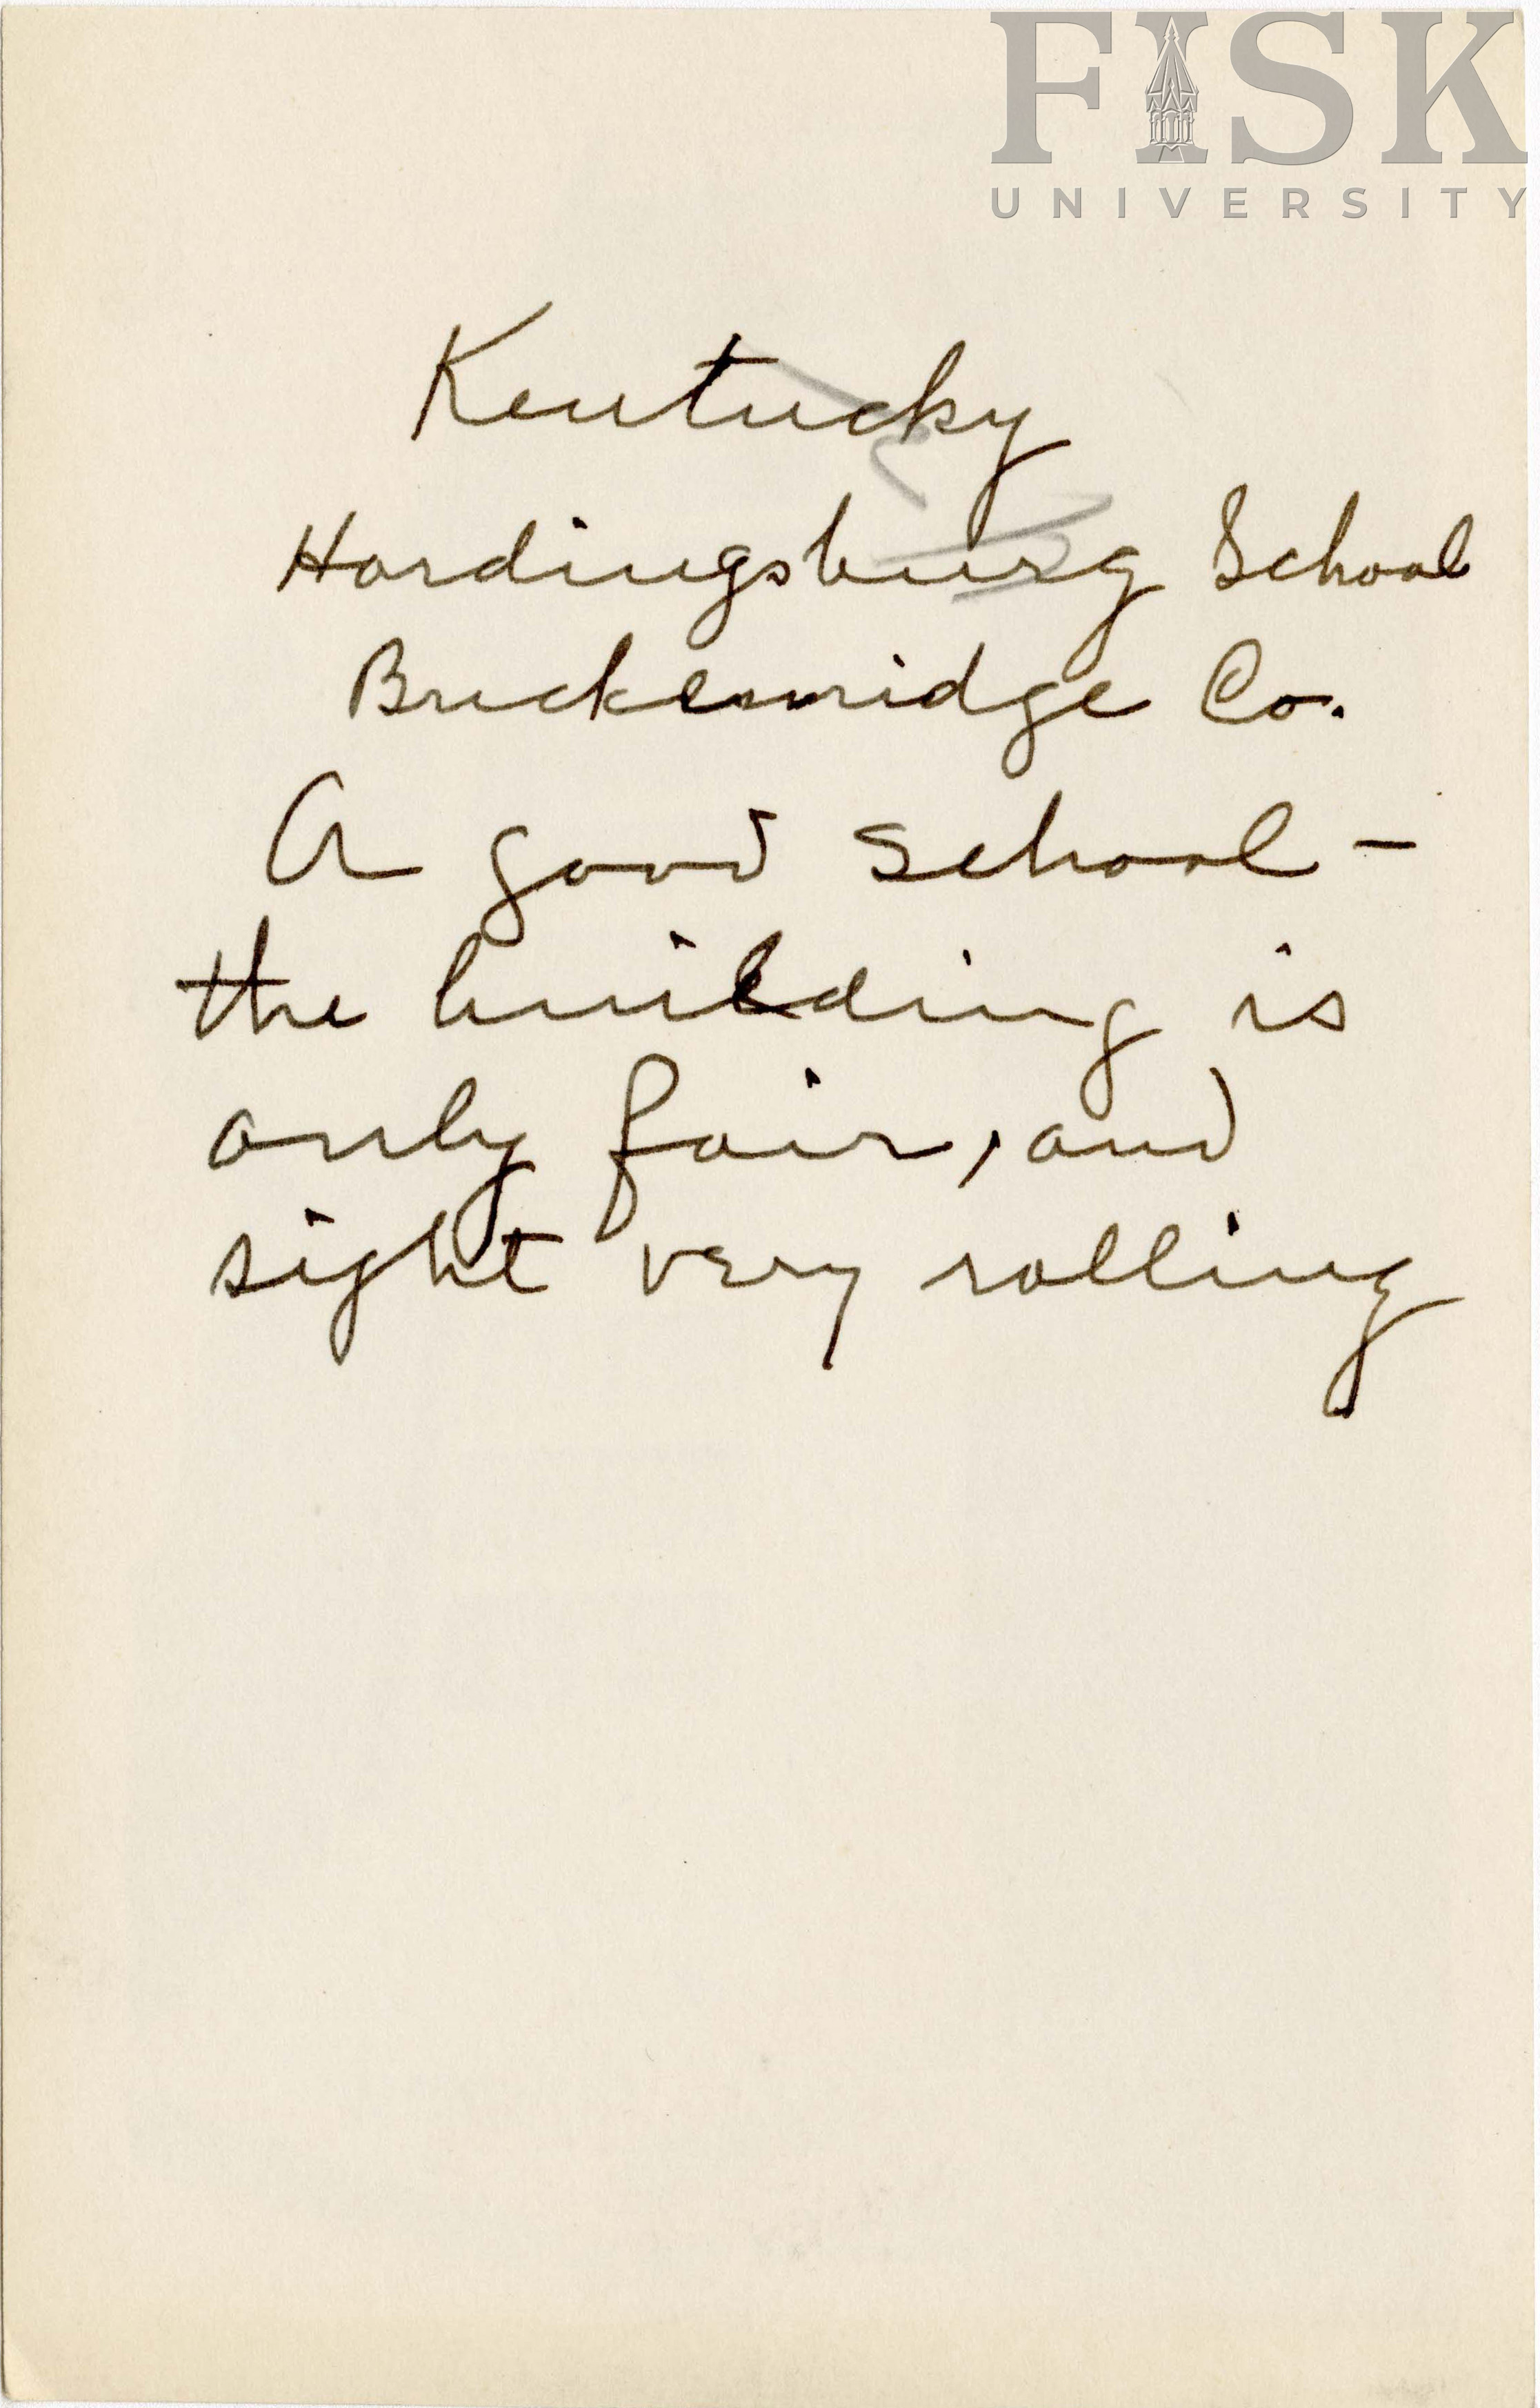 FISK
UNIVERSITY
Kentucky
Hardingsburg School
Breckenridge Co.
A good school -
the building is
only fair, and
sight very rolling